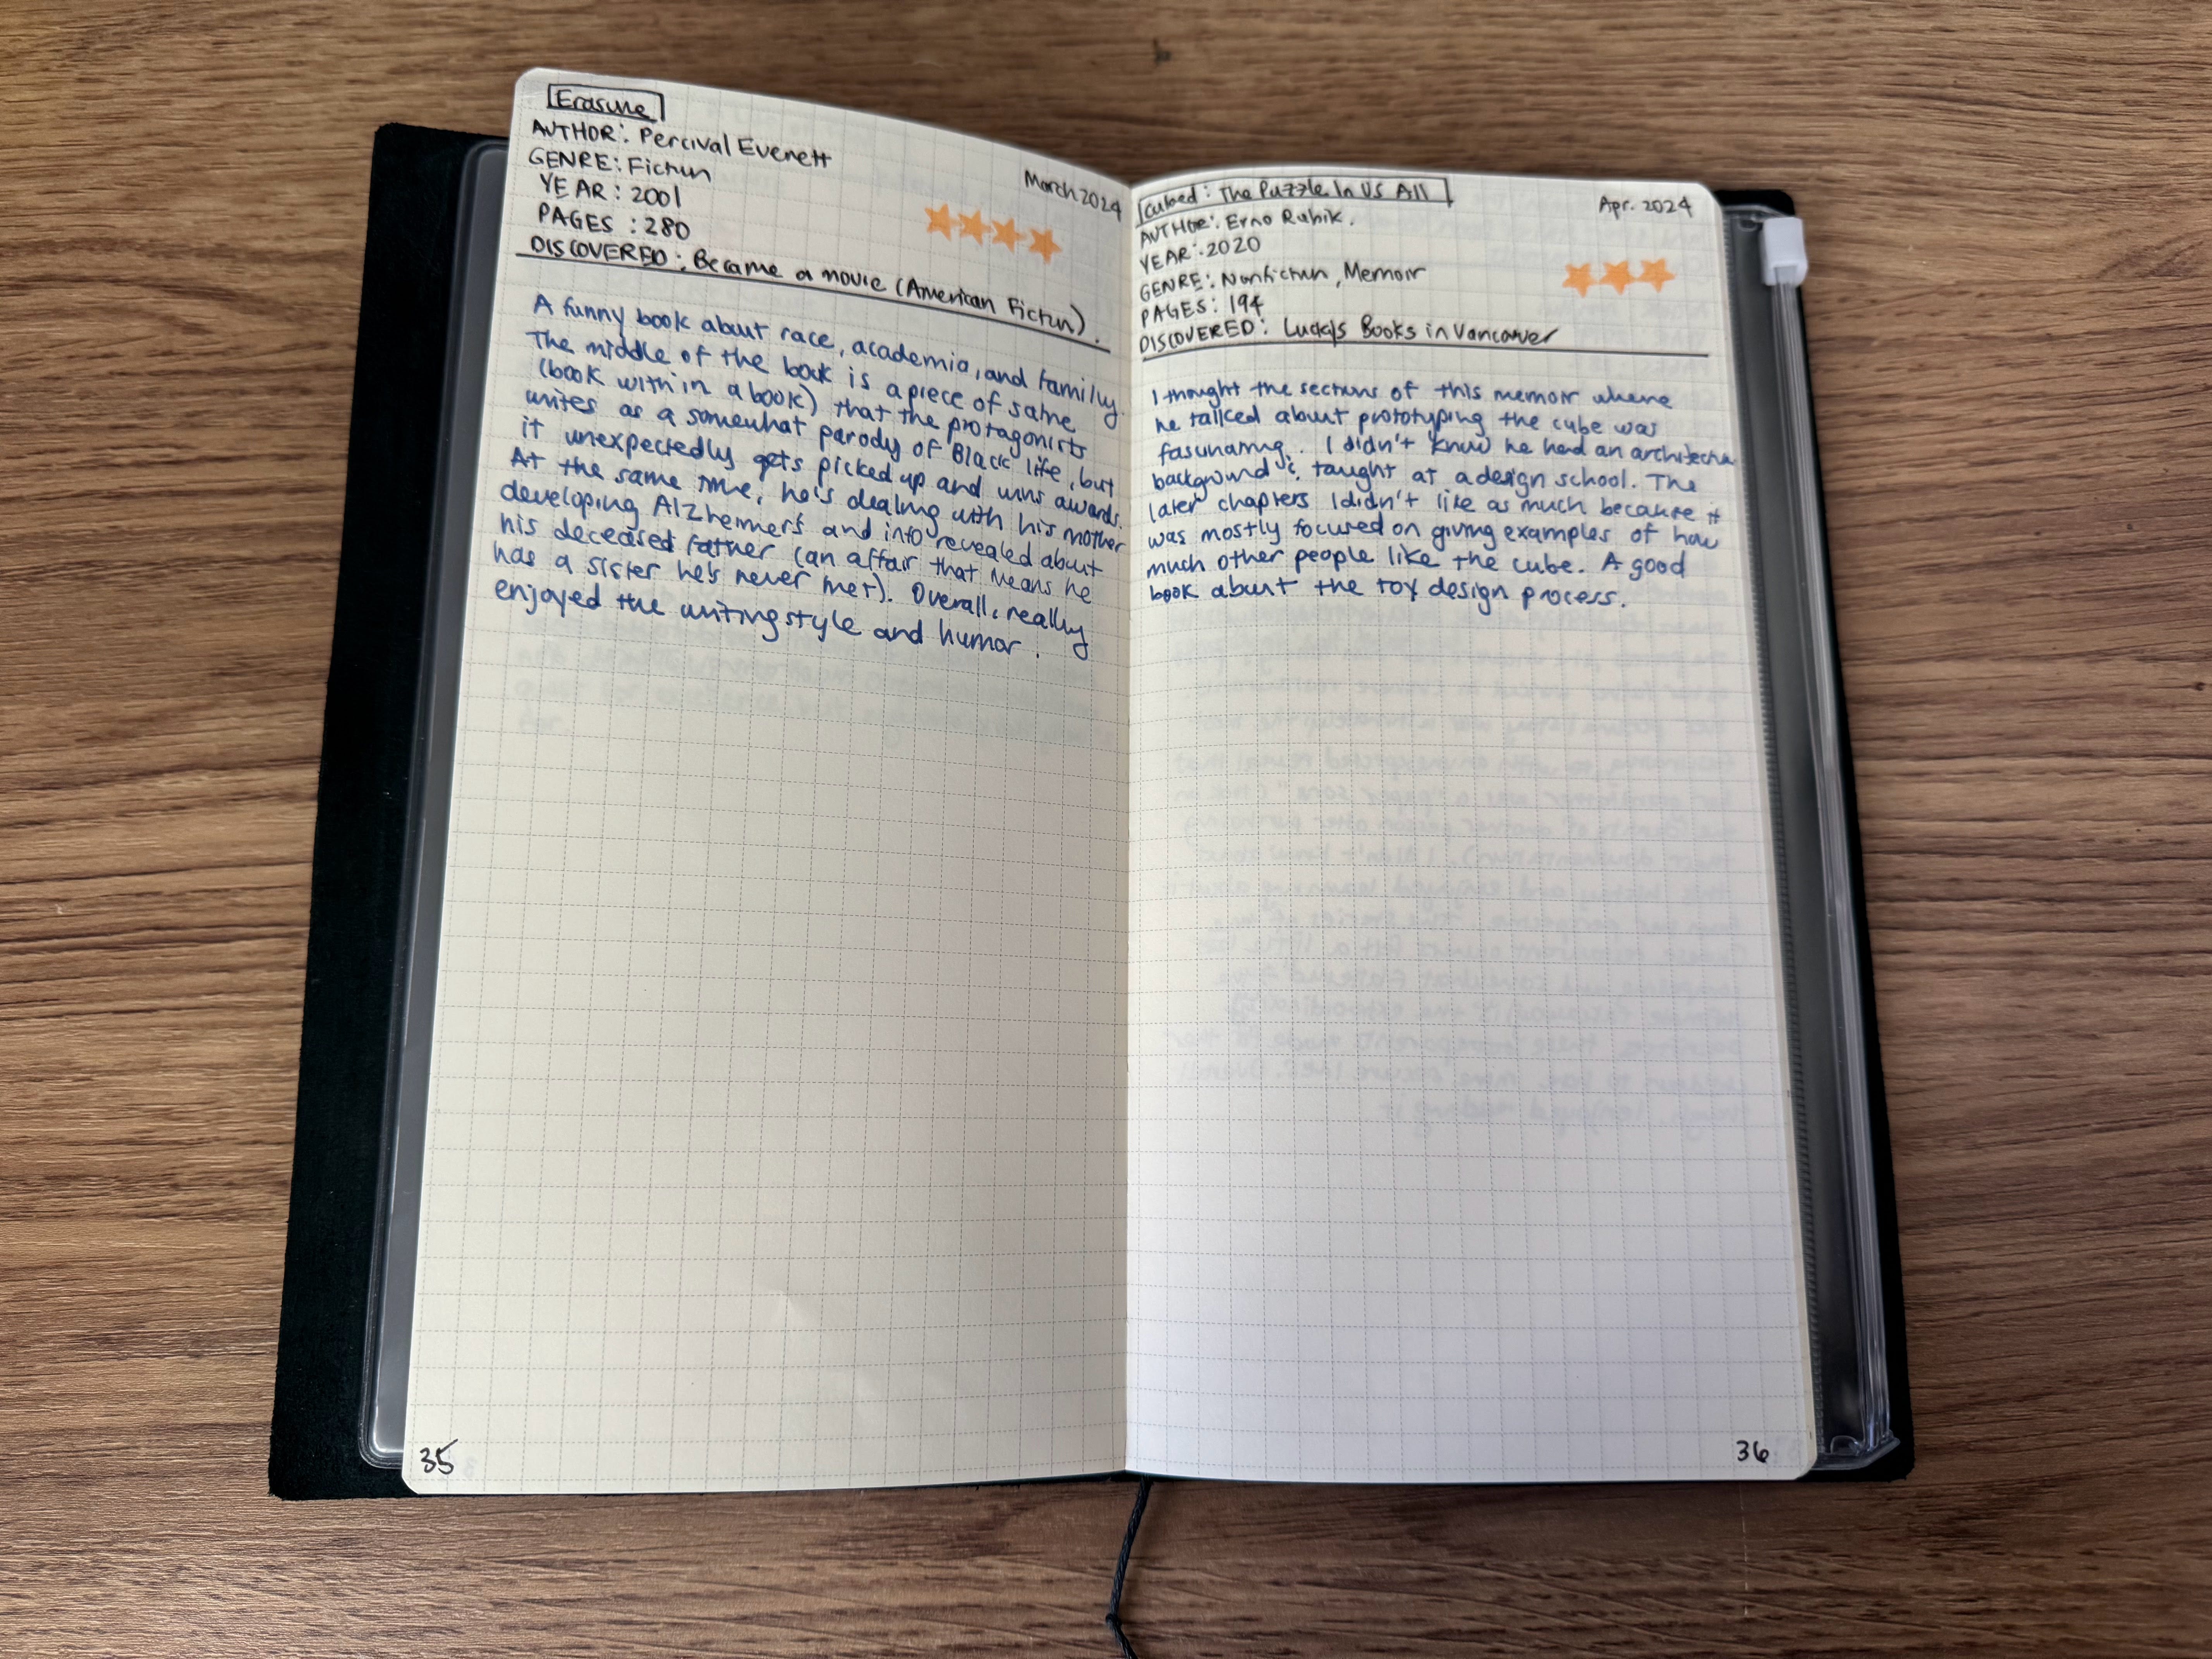 Erasure
March 2024
AUTHOR: Percival Everett
GENRE: Fiction
YEAR: 2001
PAGES: 280
DISCOVERED: Became a movie (American Fiction).
A funny book about race, academia, and family.
The middle of the book is a piece of satire
(book within a book) that the protagonists
writes as a somewhat parody of Black life, but
it unexpectedly gets picked up and wins awards.
At the same time, he's dealing with his mother
developing Alzheimer's and info revealed about
his deceased father (an affair that means he
has a sister he's never met). Overall, really
enjoyed the writing style and humor.
35
Cubed: The Puzzle In Us All
Apr. 2024
AUTHOR: Erno Rubik.
YEAR: 2020
GENRE: Nonfiction, Memoir
PAGES: 194
DISCOVERED: Lucky's Books in Vancouver
I thought the sections of this memoir where
he talked about prototyping the cube was
fascinating. I didn't know he had an architecture
background & taught at a design school. The
later chapters I didn't like as much because it
was mostly focused on giving examples of how
much other people like the cube. A good
book about the toy design process.
36